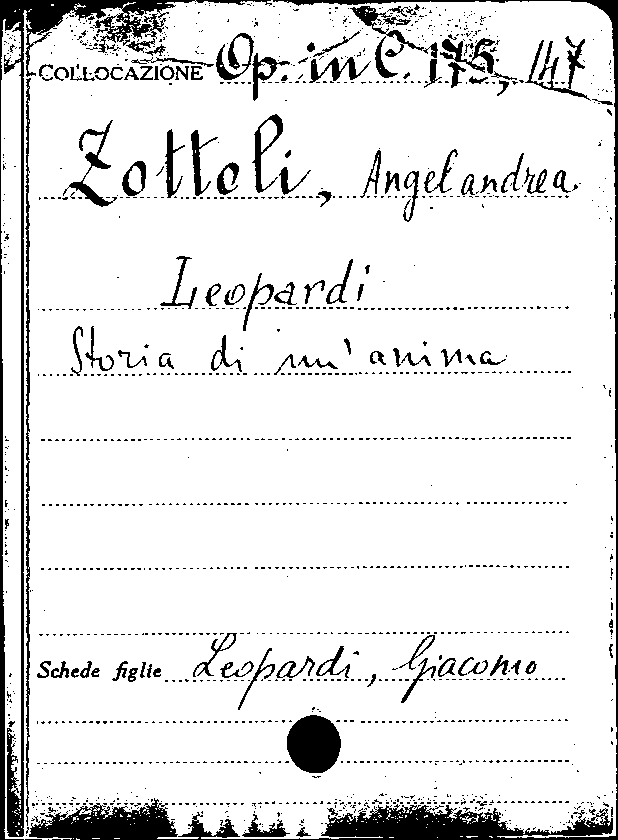 COLLOCAZIONE Op. in C. 175, 147
Zottoli, Angelandrea
Leopardi
Storia di un' anima
Schede figlie Leopardi, Giacomo